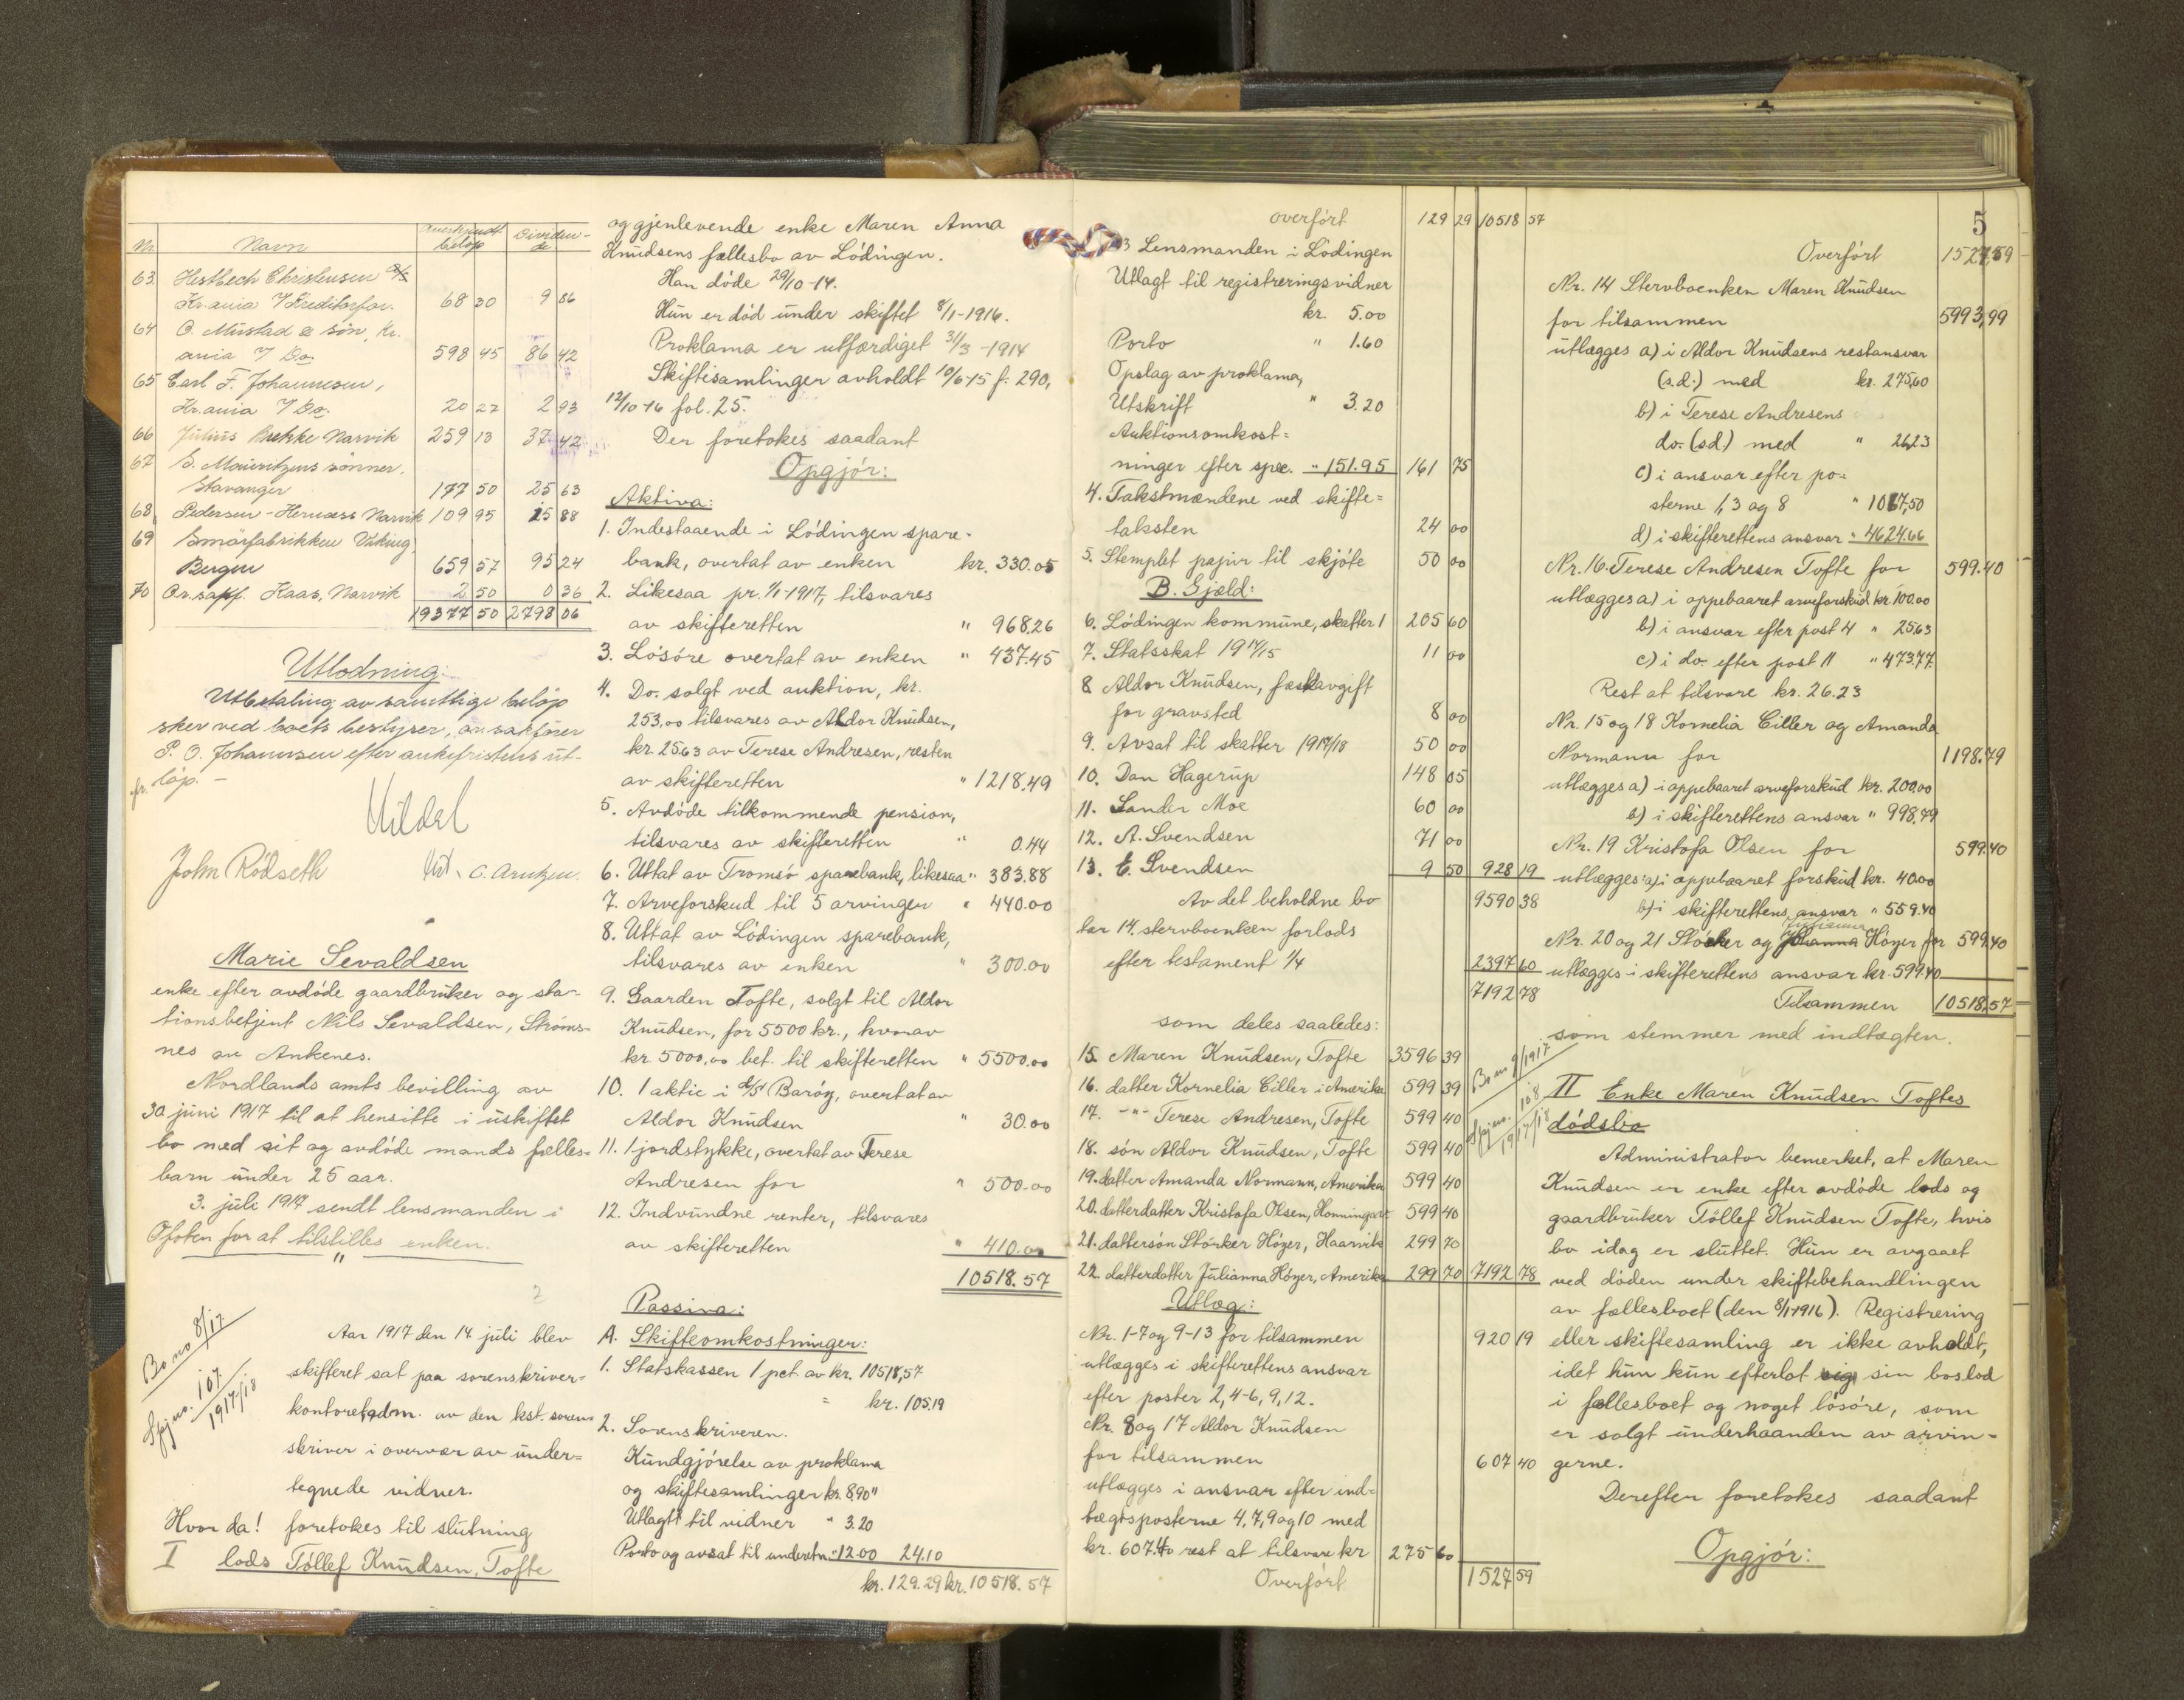 Nr. Navn Anerkjendt beløp Dividende
63 Hestbech Christensen A/S
Kr.ania v/ Kreditorfor. 68 30 9 86
64 O. Mustad & søn, Kr.
ania v/ Do. 598 45 86 42
65 Carl F. Johannesen,
Kr.ania v/ Do. 20 27 2 93
66 Julius Brekke Narvik 259 13 37 42
67 S. Mauritzens sønner,
Stavanger 177 50 25 63
68 Pedersen-Hermess Narvik 109 95 15 88
69 Smørfabrikken Viking
Bergen 659 57 95 24
70 O.r.sakf. Haas, Narvik 2 50 0 36
19377 50 2798 06
Utlodning:
Utbetaling av samtlige beløp
sker ved boets bestyrer, o.r.sakfører
P. O. Johannesen efter ankefristens ut-
løp. –
Uildal
John Rødseth Vid. C. Arntzen.
Marie Sevaldsen
enke efter avdøde gaardbruker og sta-
tionsbetjent Nils Sevaldsen, Strøms-
nes av Ankenes.
Nordlands amts bevilling av
30 juni 1917 til at hensitte i uskiftet
bo med sit og avdøde mands fælles-
barn under 25 aar.
3. juli 1917 sendt lensmanden i
Ofoten for at tilstilles enken.
"
Bo no 8/17
Spjno. 107
1917/18
Aar 1917 den 14 juli blev
skifteret sat paa sorenskriver-
kontoret adm. av den kst. soren-
skriver i overvær av under=
tegnede vidner.
Hvor da! foretokes til slutning
I lods Tøllef Knudsen, Tofte
og gjenlevende enke Maren Anna
Knudsens fællesbo av Lødingen.
Han døde 29/10-14.
Hun er død under skiftet 8/1-1916.
Proklama er utfærdiget 31/3-1914
Skiftesamlinger avholdt 10/6-15 f. 290,
12/10-16 fol. 25.
Der foretokes saadant
Opgjør:
Aktiva:
1. Indestaaende i Lødingen spare-
bank, overtat av enken kr. 330.05
2. Likesaa pr. 1/1-1917, tilsvares
av skifteretten " 968.26
3. Løsøre overtat av enken " 437.45
4. Do. solgt ved auktion, kr.
253,00 tilsvares av Aldor Knudsen,
kr. 25.63 av Terese Andresen, resten
av skifteretten " 1218.49
5. Avdøde tilkommende pension,
tilsvares av skifteretten " 0.44
6. Uttat av Tromsø sparebank, likesaa " 383.88
7. Arveforskud til 5 arvinger " 440.00
8. Uttat av Lødingen sparebank,
tilsvares av enken " 300.00
9. Gaarden Tofte, solgt til Aldor
Knudsen, for 5500 kr., hvorav
kr. 5000,00 bet. til skifteretten " 5500.00
10. 1 aktie i d/s Barøy, overtat av
Aldor Knudsen " 30.00
11. 1 jordstykke, overtat av Terese
Andresen for " 500.00
12. Indvundne renter, tilsvares
av skifteretten " 410.00
10518.57
Passiva:
A. Skifteomkostninger:
1. Statskassen 1 pct. av kr. 10518,57
= kr. 105.19
2. Sorenskriveren.
Kundgjørelse av proklama
og skiftesamlinger kr. 8.90"
Utlagt til vidner " 3.20
Porto og avsat til underetn. " 12.00 24.10
kr. 129.29 kr. 10518.57
overført 129 29 10518 57
3 Lensmanden i Lødingen
Utlagt til registreringsvidner
kr. 5.00
Porto " 1.60
Opslag av proklama,
Utskrift " 3.20
Auktionsomkost=
ninger efter spec. " 151.95 161 75
4. Takstmændene ved skifte=
taksten 24 00
5. Stemplet papir til skjøte 50 00
B. Gjæld:
6. Lødingen kommune, skatter 1 205 60
7. Statsskat 1914/15 11 00
8 Aldor Knudsen, fæstavgift
for gravsted 8 00
9. Avsat til skatter 1917/18 50 00
10. Dan Hagerup 148 05
11. Sander Moe 60 00
12. A. Svendsen 71 00
13. E. Svendsen 9 50 928 19
Av det beholdne bo 9590 38
tar 14. stervboenken forlods
efter testament 1/4 2397 60
7192 78
som deles saaledes:
15. Maren Knudsen, Tofte 3596 39
16. datter Kornelia Ciller i Amerika 599 39
17. -"- Terese Andresen, Tofte 599 40
18. søn Aldor Knudsen, Tofte 599 40
19. datter Amanda Normann, Amerika 599 40
20. datterdatter Kristofa Olsen, Honningsv. 599 40
21. dattersøn Størker Høyer, Haarvik 299 70
22. datterdatter Julianna Høyer, Amerika 299 70 7192 78
Utlæg:
Nr. 1-7 og 9-13 for tilsammen 920 19
utlægges i skifterettens ansvar
efter poster 2, 4-6, 9, 12.
Nr. 8 og 17 Aldor Knudsen
for tilsammen 607 40
utlægges i ansvar efter ind=
tægtsposterne 4, 7, 9 og 10 med
kr. 607.40 rest at tilsvare kr 275 60
Overført 1527 59
5
Overført 1527,59
Nr. 14 Stervboenken Maren Knudsen
for tilsammen 5993,99
utlægges a) i Aldor Knudsens restansvar
(s.d.) med kr. 275,60
b) i Terese Andresens
do. (s.d.) med " 26,23
c) i ansvar efter po=
sterne 1, 3 og 8 " 1067,50
d) i skifterettens ansvar " 4624.66
Nr. 16. Terese Andresen Tofte for 599.40
utlægges a) i oppebaaret arveforskud kr. 100.00
b) i ansvar efter post 4 " 25.63
c) i do. efter post 11 " 473.77
Rest at tilsvare kr. 26.23
Nr. 15 og 18 Kornelia Ciller og Amanda
Normann for 1198.79
utlægges a) i oppebaaret arveforskud kr. 200,00
b) i skifterettens ansvar " 998,79
Nr. 19 Kristofa Olsen for 599.40
utlægges: a) i oppebaaret forskud kr. 40.00
b) i skifterettens ansvar " 559.40
Nr. 20 og 21 Størker og Johanna Høyer for 599.40
utlægges i skifterettens ansvar kr. 599.40
Tilsammen 10518,57
som stemmer med indtægten.
Bo no 9/1917
Spjno. 108
1917/18
II Enke Maren Knudsen Toftes
dødsbo
Administrator bemerket, at Maren
Knudsen er enke efter avdøde lods og
gaardbruker Tøllef Knudsen Tofte, hvis
bo idag er sluttet. Hun er avgaaet
ved døden under skiftebehandlingen
av fællesboet (den 8/1-1916). Registrering
eller skiftesamling er ikke avholdt,
idet hun kun efterlot sig sin boslod
i fællesboet og noget løsøre, som
er solgt underhaanden av arvin-
gerne.
Derefter foretokes saadant
Opgjør: